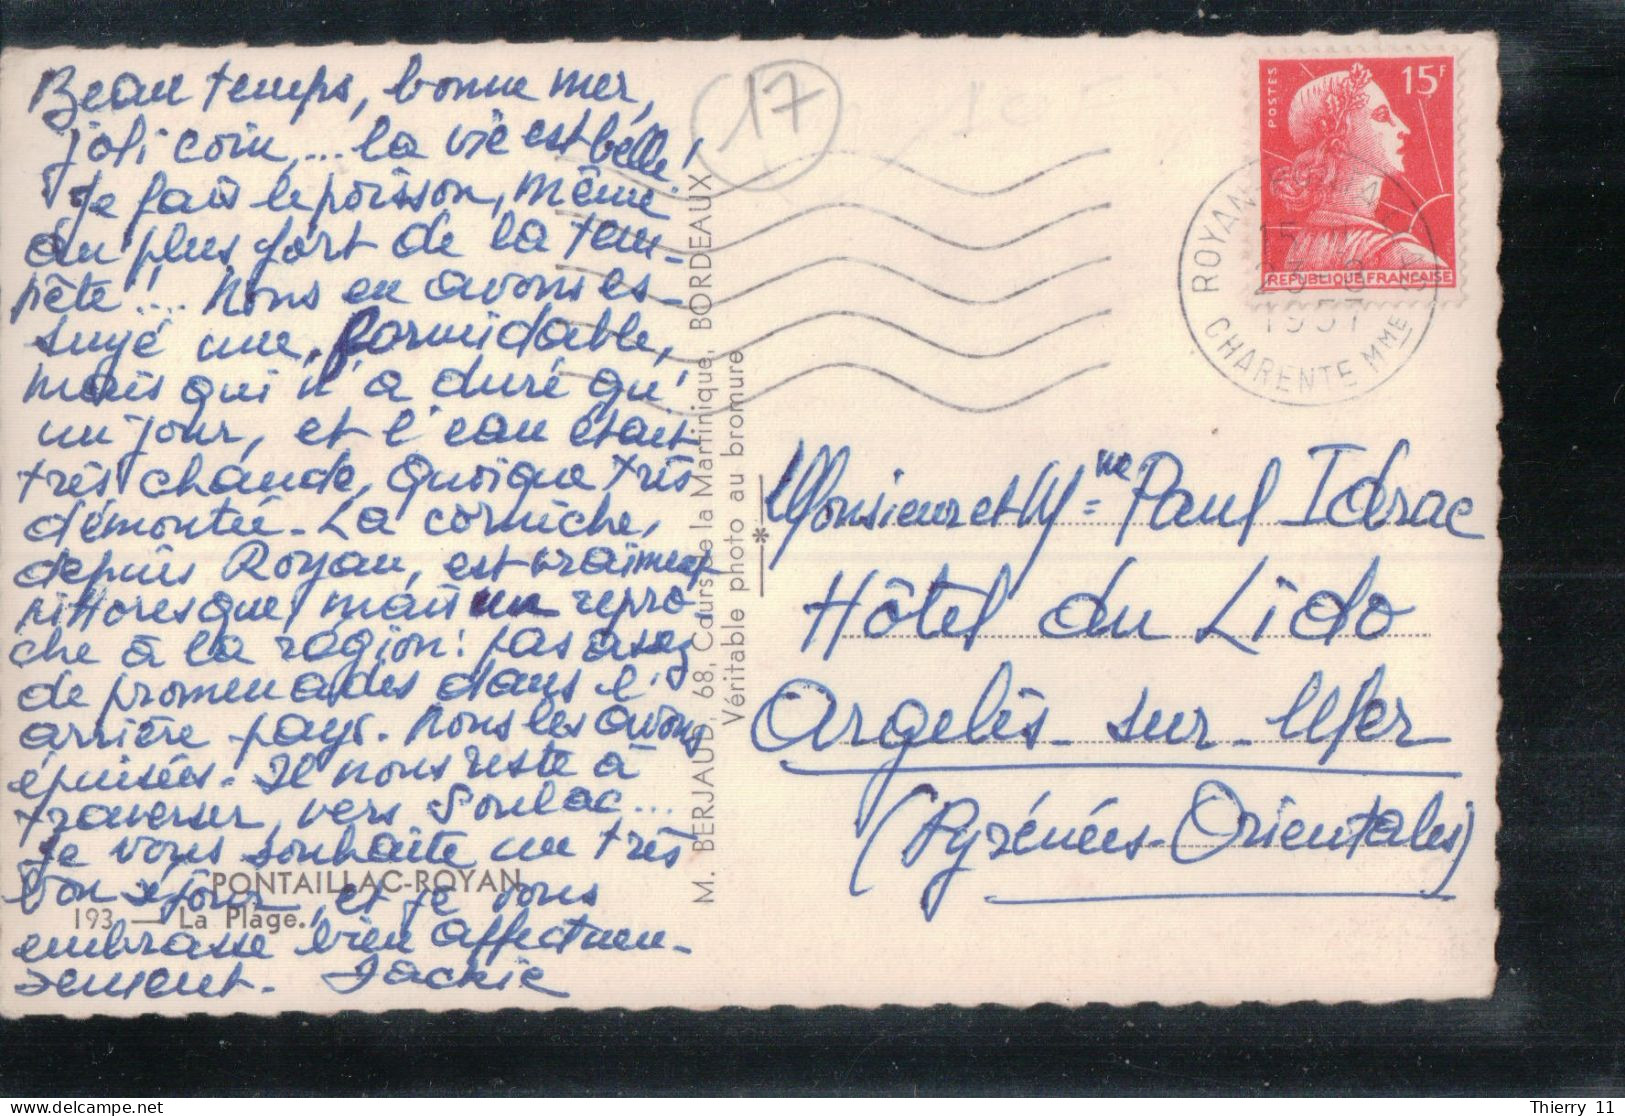 Beau temps, bonne mer,
joli coin,... la vie est belle!
Je fais le poisson, même
au plus fort de la tem-
pête!... Nous en avons es-
suyé une, formidable,
mais qui n'a duré qu'
un jour, et l'eau était
très chaude, quoique très
démontée. La corniche,
depuis Royan, est vraiment
pittoresque, mais un repro-
che à la région: pas assez
de promenades dans l'
arrière-pays. Nous les avons
épuisées. Il nous reste à
traverser vers Soulac...
Je vous souhaite un très
bon séjour, et je vous
embrasse bien affectueu-
sement. Jackie
PONTAILLAC-ROYAN
193 — La Plage.
M. BERJAUD, 68, Cours de la Martinique, BORDEAUX
Véritable photo au bromure
17
POSTES
15F
REPUBLIQUE FRANÇAISE
ROYAN
1957
CHARENTE MME
Monsieur et Mme Paul Idrac
Hôtel du Lido
Argelès-sur-Mer
(Pyrénées-Orientales)
Thierry 11